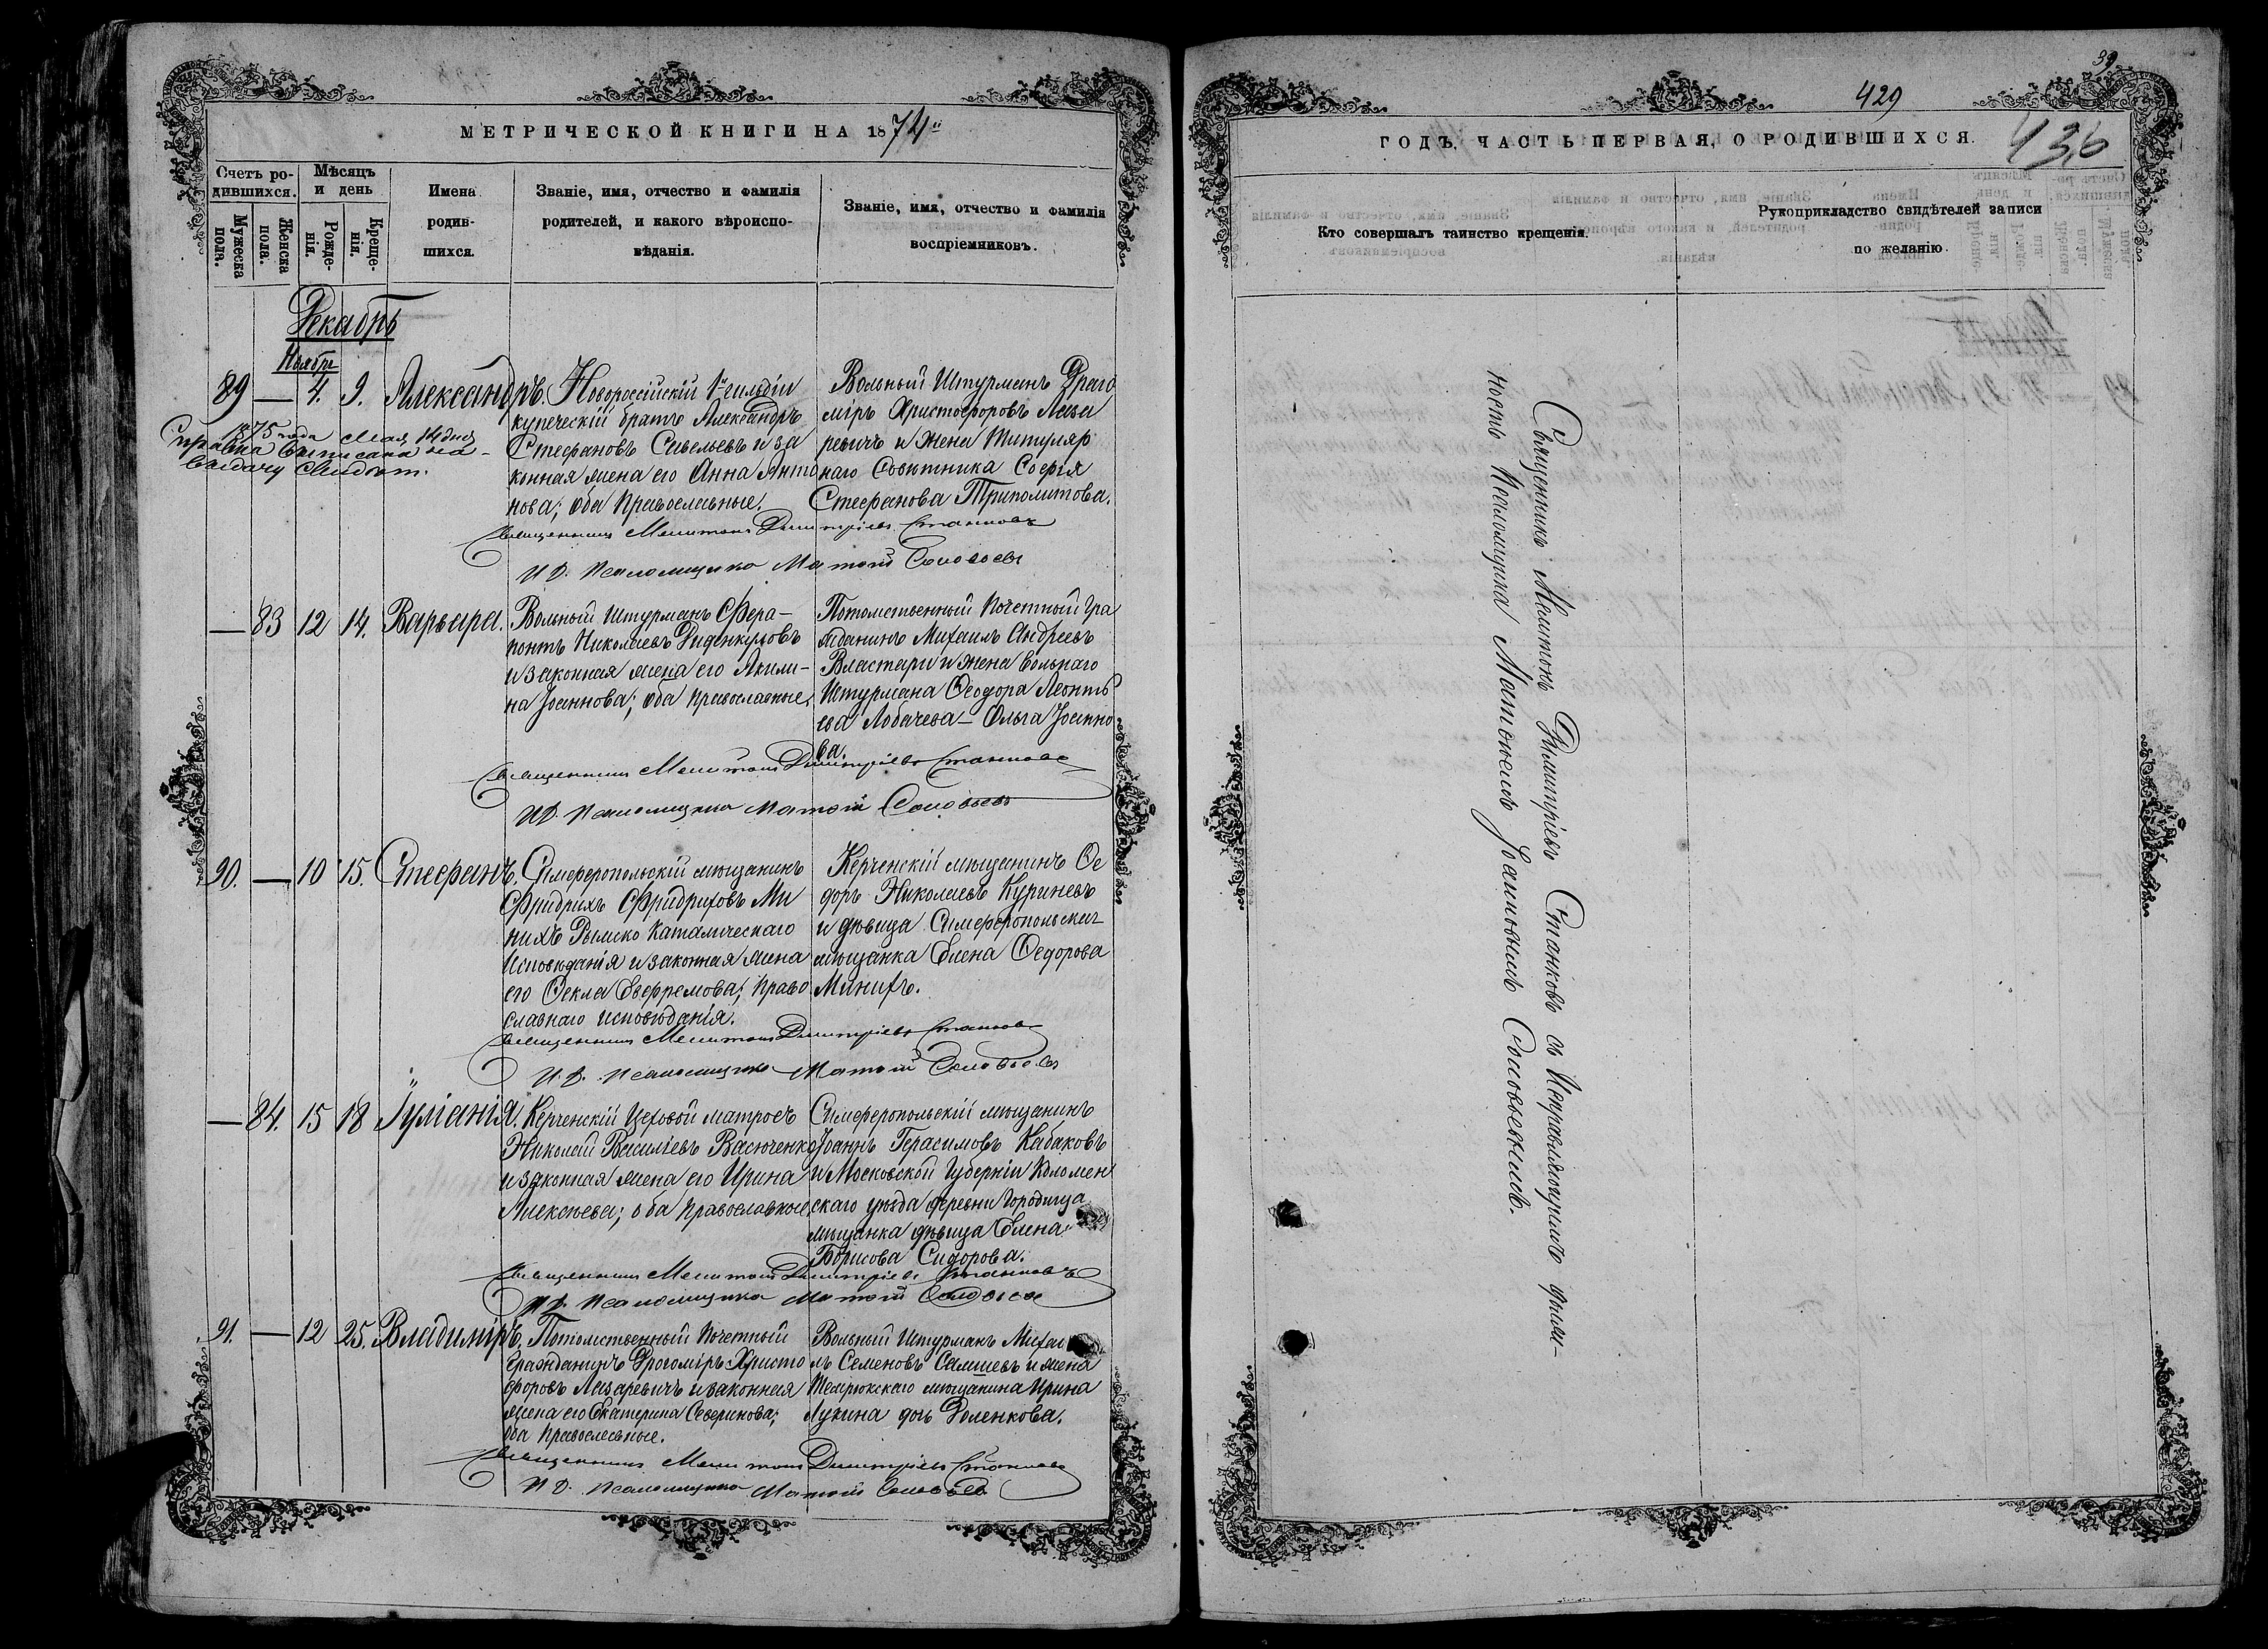 МЕТРИЧЕСКОЙ КНИГИ НА 1874й
Счетъ ро-
дившихся.
Мѣсяцъ
и день
Мужеска
пола.
Женска
пола.
Рожде-
нія.
Креще-
нія.
Имена
родив-
шихся.
Званіе, имя, отчество и фамилія
родителей, и какого вѣроиспо-
вѣданія.
Званіе, имя, отчество и фамилія
воспріемниковъ.
Декабрь
Ноября
89 — 4. 9. Александръ.
Новороссійскій 1й гильдіи
купеческій братъ Александръ
Стефановъ Савельевъ и за
конная жена его Анна Анто
нова; оба Православные.
Вольный Штурманъ Драго
міръ Христофоровъ Лаза
ревичъ и жена Титуляр
наго Совѣтника Софія
Стефанова Триполитова.
1875 года Мая 14 дня
Справка выписана на
выдачу
Священникъ Мелитонъ Димитріевъ Станковъ
И.Д. Псаломщика Матѳій Соловьевъ
— 83 12 14. Варвара.
Вольный Штурманъ Фера-
понтъ Николаевъ Диденкуловъ
и законная жена его Акили-
на Іоаннова; оба православные.
Потомственный Почетный Гра
жданинъ Михаилъ Андреевъ
Властари и жена вольнаго
Штурмана Ѳеодора Леонть
ева Лобачева — Ольга Іоанно
ва.
Священникъ Мелитонъ Димитріевъ Станковъ
И.Д. Псаломщика Матѳій Соловьевъ
90. — 10 15. Стефанъ.
Симферопольскій мѣщанинъ
Фридрихъ Фридриховъ Ми
нихъ Римско Католическаго
Исповѣданія и законная жена
его Ѳекла Евфремова; Право
славнаго исповѣданія.
Керченскій мѣщанинъ Ѳе
доръ Николаевъ Куриневъ
и дѣвица Симферопольская
мѣщанка Елена Ѳедорова
Минихъ.
Священникъ Мелитонъ Димитріевъ Станковъ
И.Д. Псаломщика Матѳій Соловьевъ
— 84. 15 18 Іуліанія.
Керченскій Цеховой матросъ
Николай Васильевъ Васюченко
и законная жена его Ирина
Алексѣева; оба православные
Симферопольскій мѣщанинъ
Іоаннъ Герасимовъ Кабаковъ
и Московской Губерніи Коломен
скаго уѣзда деревни Городища
мѣщанка дѣвица Елена
Борисова Сидорова.
Священникъ Мелитонъ Димитріевъ Станковъ
И.Д. Псаломщика Матѳій Соловьевъ
91. — 12 25. Владиміръ.
Потомственный Почетный
Гражданинъ Драгоміръ Христо
форовъ Лазаревичъ и законная
жена его Екатерина Северинова;
оба Православные.
Вольный Штурманъ Михаи
лъ Семеновъ Семшевъ и жена
Темрюкскаго мѣщанина Ирина
Лукина дочь Доленкова.
Священникъ Мелитонъ Димитріевъ Станковъ
И.Д. Псаломщика Матѳій Соловьевъ
39
429
436
ГОДЪ, ЧАСТЬ ПЕРВАЯ, О РОДИВШИХСЯ.
Кто совершалъ таинство крещенія.
Рукоприкладство свидѣтелей записи
по желанію.
Священникъ Мелитонъ Димитріевъ Станковъ съ Исправляющимъ долж-
ность Псаломщика Матѳеемъ Іоанновымъ Соловьевымъ.